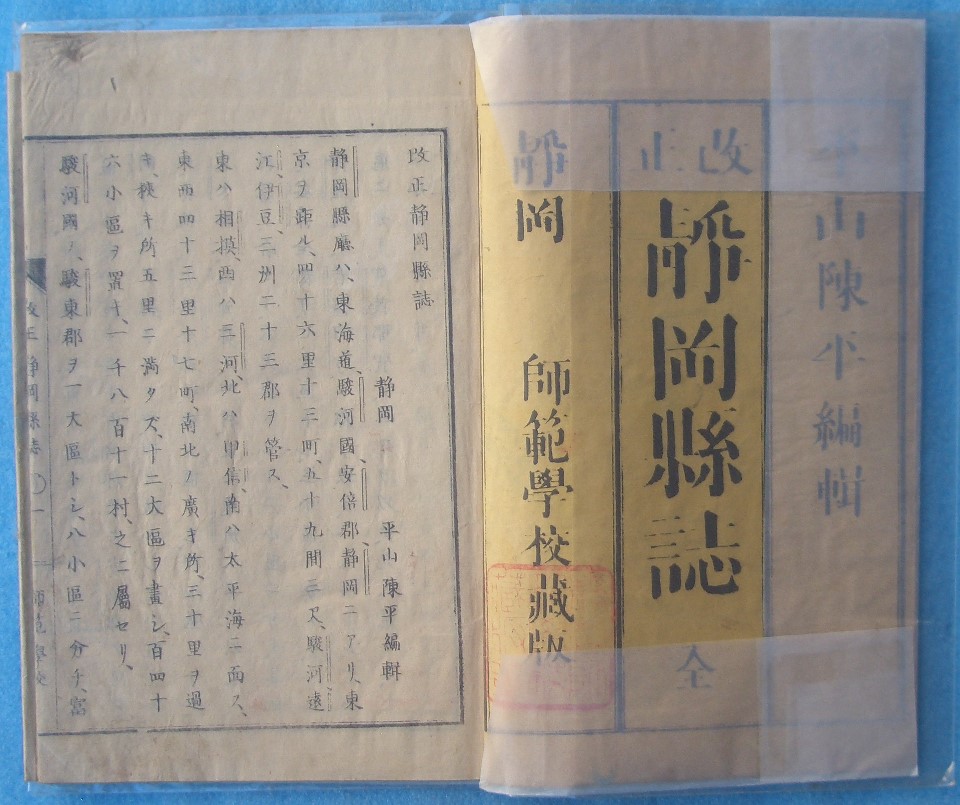 平山陳平編輯
改正
靜岡縣誌
全
靜岡
師範學校藏版
改正静岡縣誌
静岡
平山陳平編輯
静岡縣廳ハ、東海道、駿河國、安倍郡、静岡ニアリ、東
京ヲ距ル、四十六里十三町五十九間三尺、駿河遠
江、伊豆、三洲二十三郡ヲ管ス、
東ハ相摸、西ハ三河、北ハ甲信、南ハ太平海ニ面ス、
東西四十三里十七町、南北ノ廣キ所、三十里ヲ過
キ、狹キ所五里ニ滿タズ、十二大區ヲ畫シ、百四十
六小區ヲ置キ、一千八百十一村、之ニ屬セリ、
駿河國ヲ、駿東郡ヲ一大區トシ、八小區ニ分チ、富
改正静岡縣誌
一
師範學校